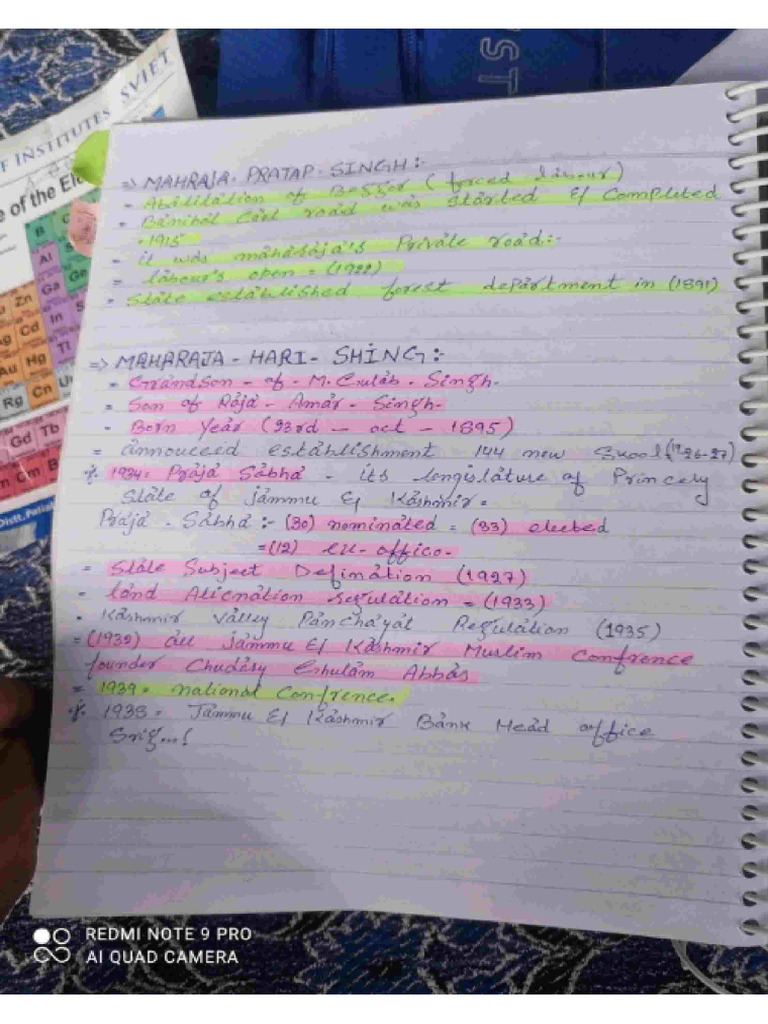 F INSTITUTES SVIET
e of the Ele
B
Al
Zn Ga Ge
Cd In S
Au Hg Tl
Rg Cn U
Gd Tb
Cm B
Distt.Patia
VST
=> MAHRAJA. PRATAP. SINGH :-
- Abilitation of Beggar (forced labour)
- Banihal Cart road was started & Completed
- 1915
- it was maharaja's Private road:-
= labour's open = (1922)
- State established forest department in (1891)
=> MAHARAJA - HARI - SHING :-
- Grandson - of - M. Gulab - Singh.
- Son of Raja - Amar - Singh.
- Born Year (23rd - oct - 1895)
= annouceed establishment 144 new Skool (1926-27)
1934: Praja Sabha - its lengislature of Princely
State of Jammu & Kashmir.
Praja - Sabha :- (30) nominated = (33) elected
=(12) ex-office.
= State Subject Defination (1927)
- land Alienation regulation = (1933)
- Kashmir Valley Panchayat Regulation (1935)
= (1932) all Jammu & Kashmir Muslim Confrence
founder Chudary Ghulam Abbas
= 1939 = national Confrence.
1938 = Jammu & Kashmir Bank Head office
Srig...!
REDMI NOTE 9 PRO
AI QUAD CAMERA